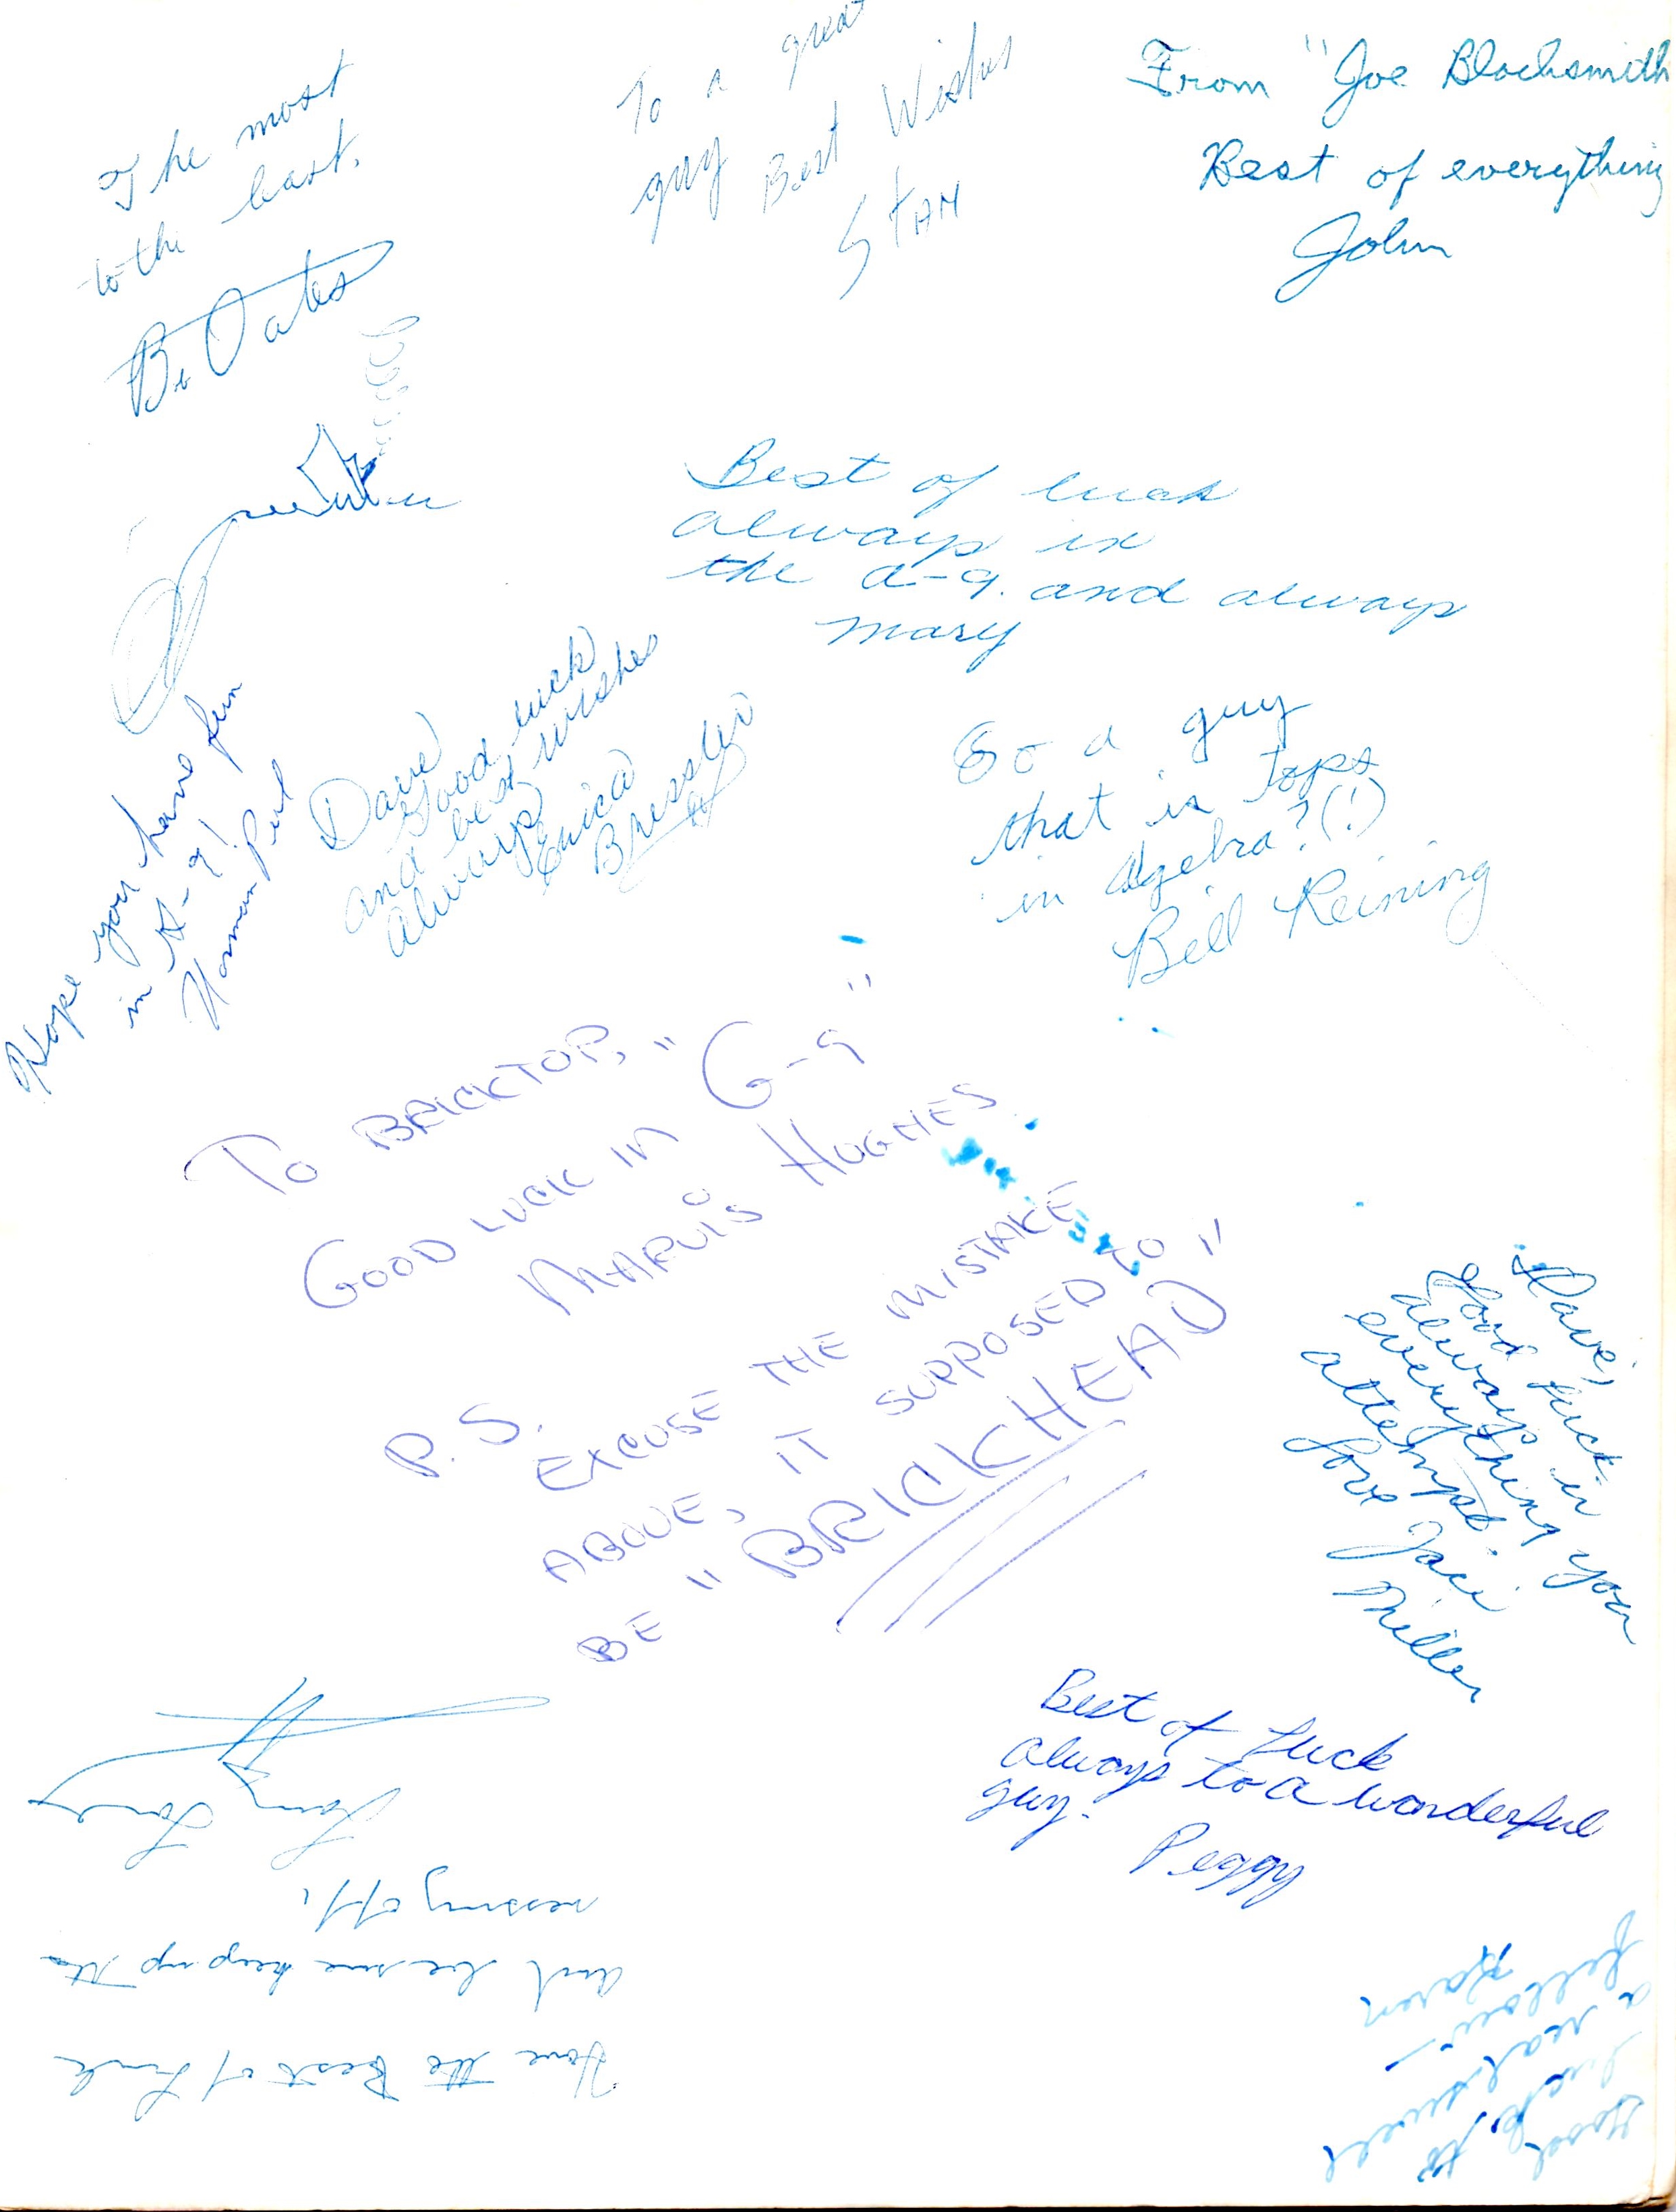 The most
to the last.
B. Oates
To a great
guy Best Wishes
STAN
From "Joe Blacksmith
Best of everything
John
Best of luck
always in
the a-9. and always
Mary
Hope you have fun
in A-9!
Norman
Dave
Good luck
and best wishes
always
Erica
Bressler
To a guy
that is tops
in algebra?(!)
Bill Reining
TO BRICKTOP,
GOOD LUCK IN "G-9"
MARVIS HUGHES.
P.S.
EXCUSE THE MISTAKE
ABOVE, IT SUPPOSED TO
BE "BRICKHEAD"
Dave,
Good luck
always in
everything you
attempt.
Love Jaci
Miller
Best of Luck
always to a wonderful
guy.
Peggy
Have the Best of Luck
and keep up the
messing off,
Larry
Good luck, to
a real swell
fellow -
Karen